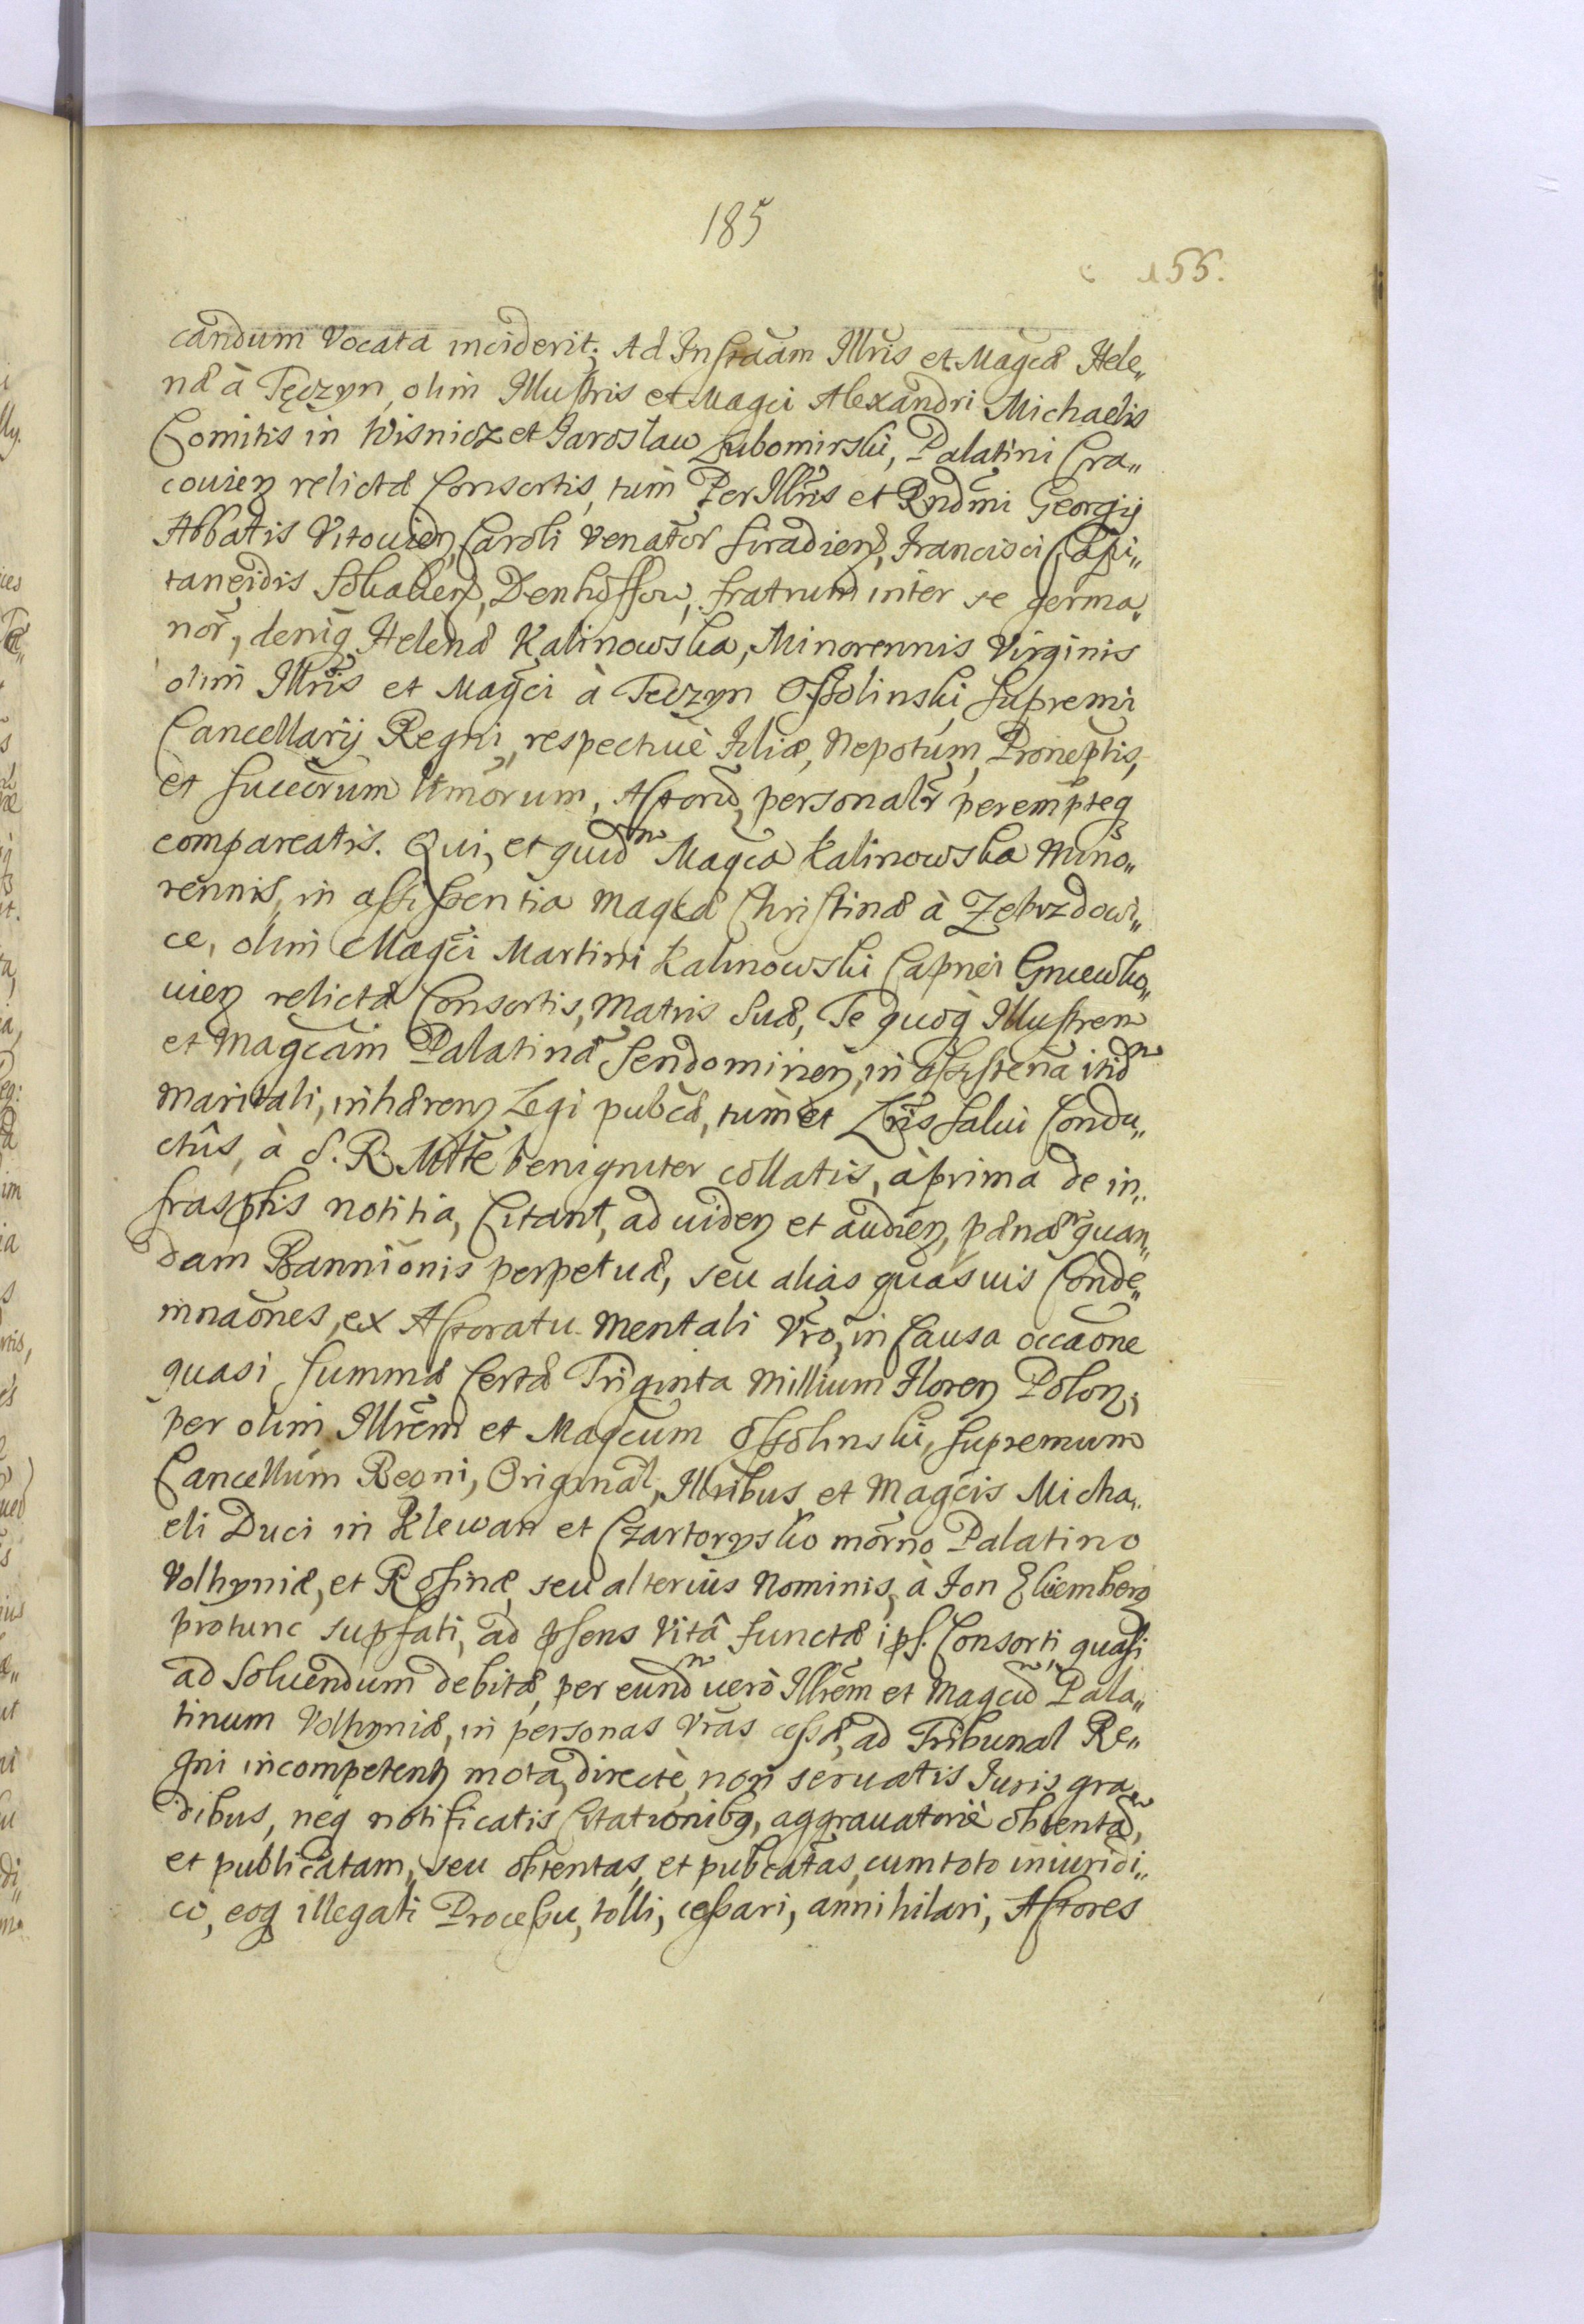 185
155.
candum Vocata inciderit; Ad Instãam Illris et Magcæ Hele„
næ à Tęczyn, olim Illustris et Magci Alexandri Michaelis
Comitis in Wisnicz et Jarosław Lubomirski, Palatini Cra„
couien relictæ Consortis, tum Per Illris et Rndmi Georgij
Abbatis Vitouien, Caroli Venator Siradien, Francisci Capi„
taneidis Sokalien, Denhoffow, fratrum inter se germa„
nor, deniq Helenæ Kalinowska, Minorennis Virginis
olim Illris et Magci à Teczyn Ossolinski Supremi
Cancellarij Regni, respectiuè filiæ, Nepotum, Proneptis,
et Succorum Utmorum, Actorũ, personalr perempteq
compareatis. Qui, et quidm Magca Kalinowska Mino„
rennis, in assistentia Magcæ Christinæ à Zebrzdowi„
ce, olim Magci Martini Kalinowski Capnei Gniewko„
uien relictæ Consortis, Matris Suæ, Te quoq Illustrem
et Magcam Palatinã Sendomirien, in assistena itidm
Maritali, inhæren Legi pubcæ, tum et Lris Salui Condu„
ctûs, à S. R. Mtte benigniter collatis, à prima de in„
frasptis notitia, Citant, ad uiden et audien, pænam quan„
dam Bannionis perpetuæ, seu alias quasuis Conde„
mnaones, ex Actoratu Mentali Vro, in Causa occaone
quasi Summæ Certæ Triginta Millium Floren Polon,
per olim Illrem et Magcum Ossolinski, Supremum
Cancellum Regni, Originał, Illribus et Magcis Micha„
eli Duci in Klewan et Czartorysko morno Palatino
Volhyniæ, et Rosinæ, seu alterius Nominis, à Jon Ekiemberg
protunc supfati, ad psens Vitâ functæ ips. Consorti, quasi
ad Soluendum debitæ, per eundm uerò Illrem et Magcũ Pala„
tinum Volhyniæ, in personas Vras cessæ, ad Tribunal Re„
gni incompetenr mota, directè, non seruatis Juris gra„
dibus, neq notificatis Citationibq, aggrauatoriè obtentam,
et publicatam, seu obtentas, et pubcatas, cum toto iniuridi„
co, eoq illegali Processu, tolli, cessari, annihilari, Actores